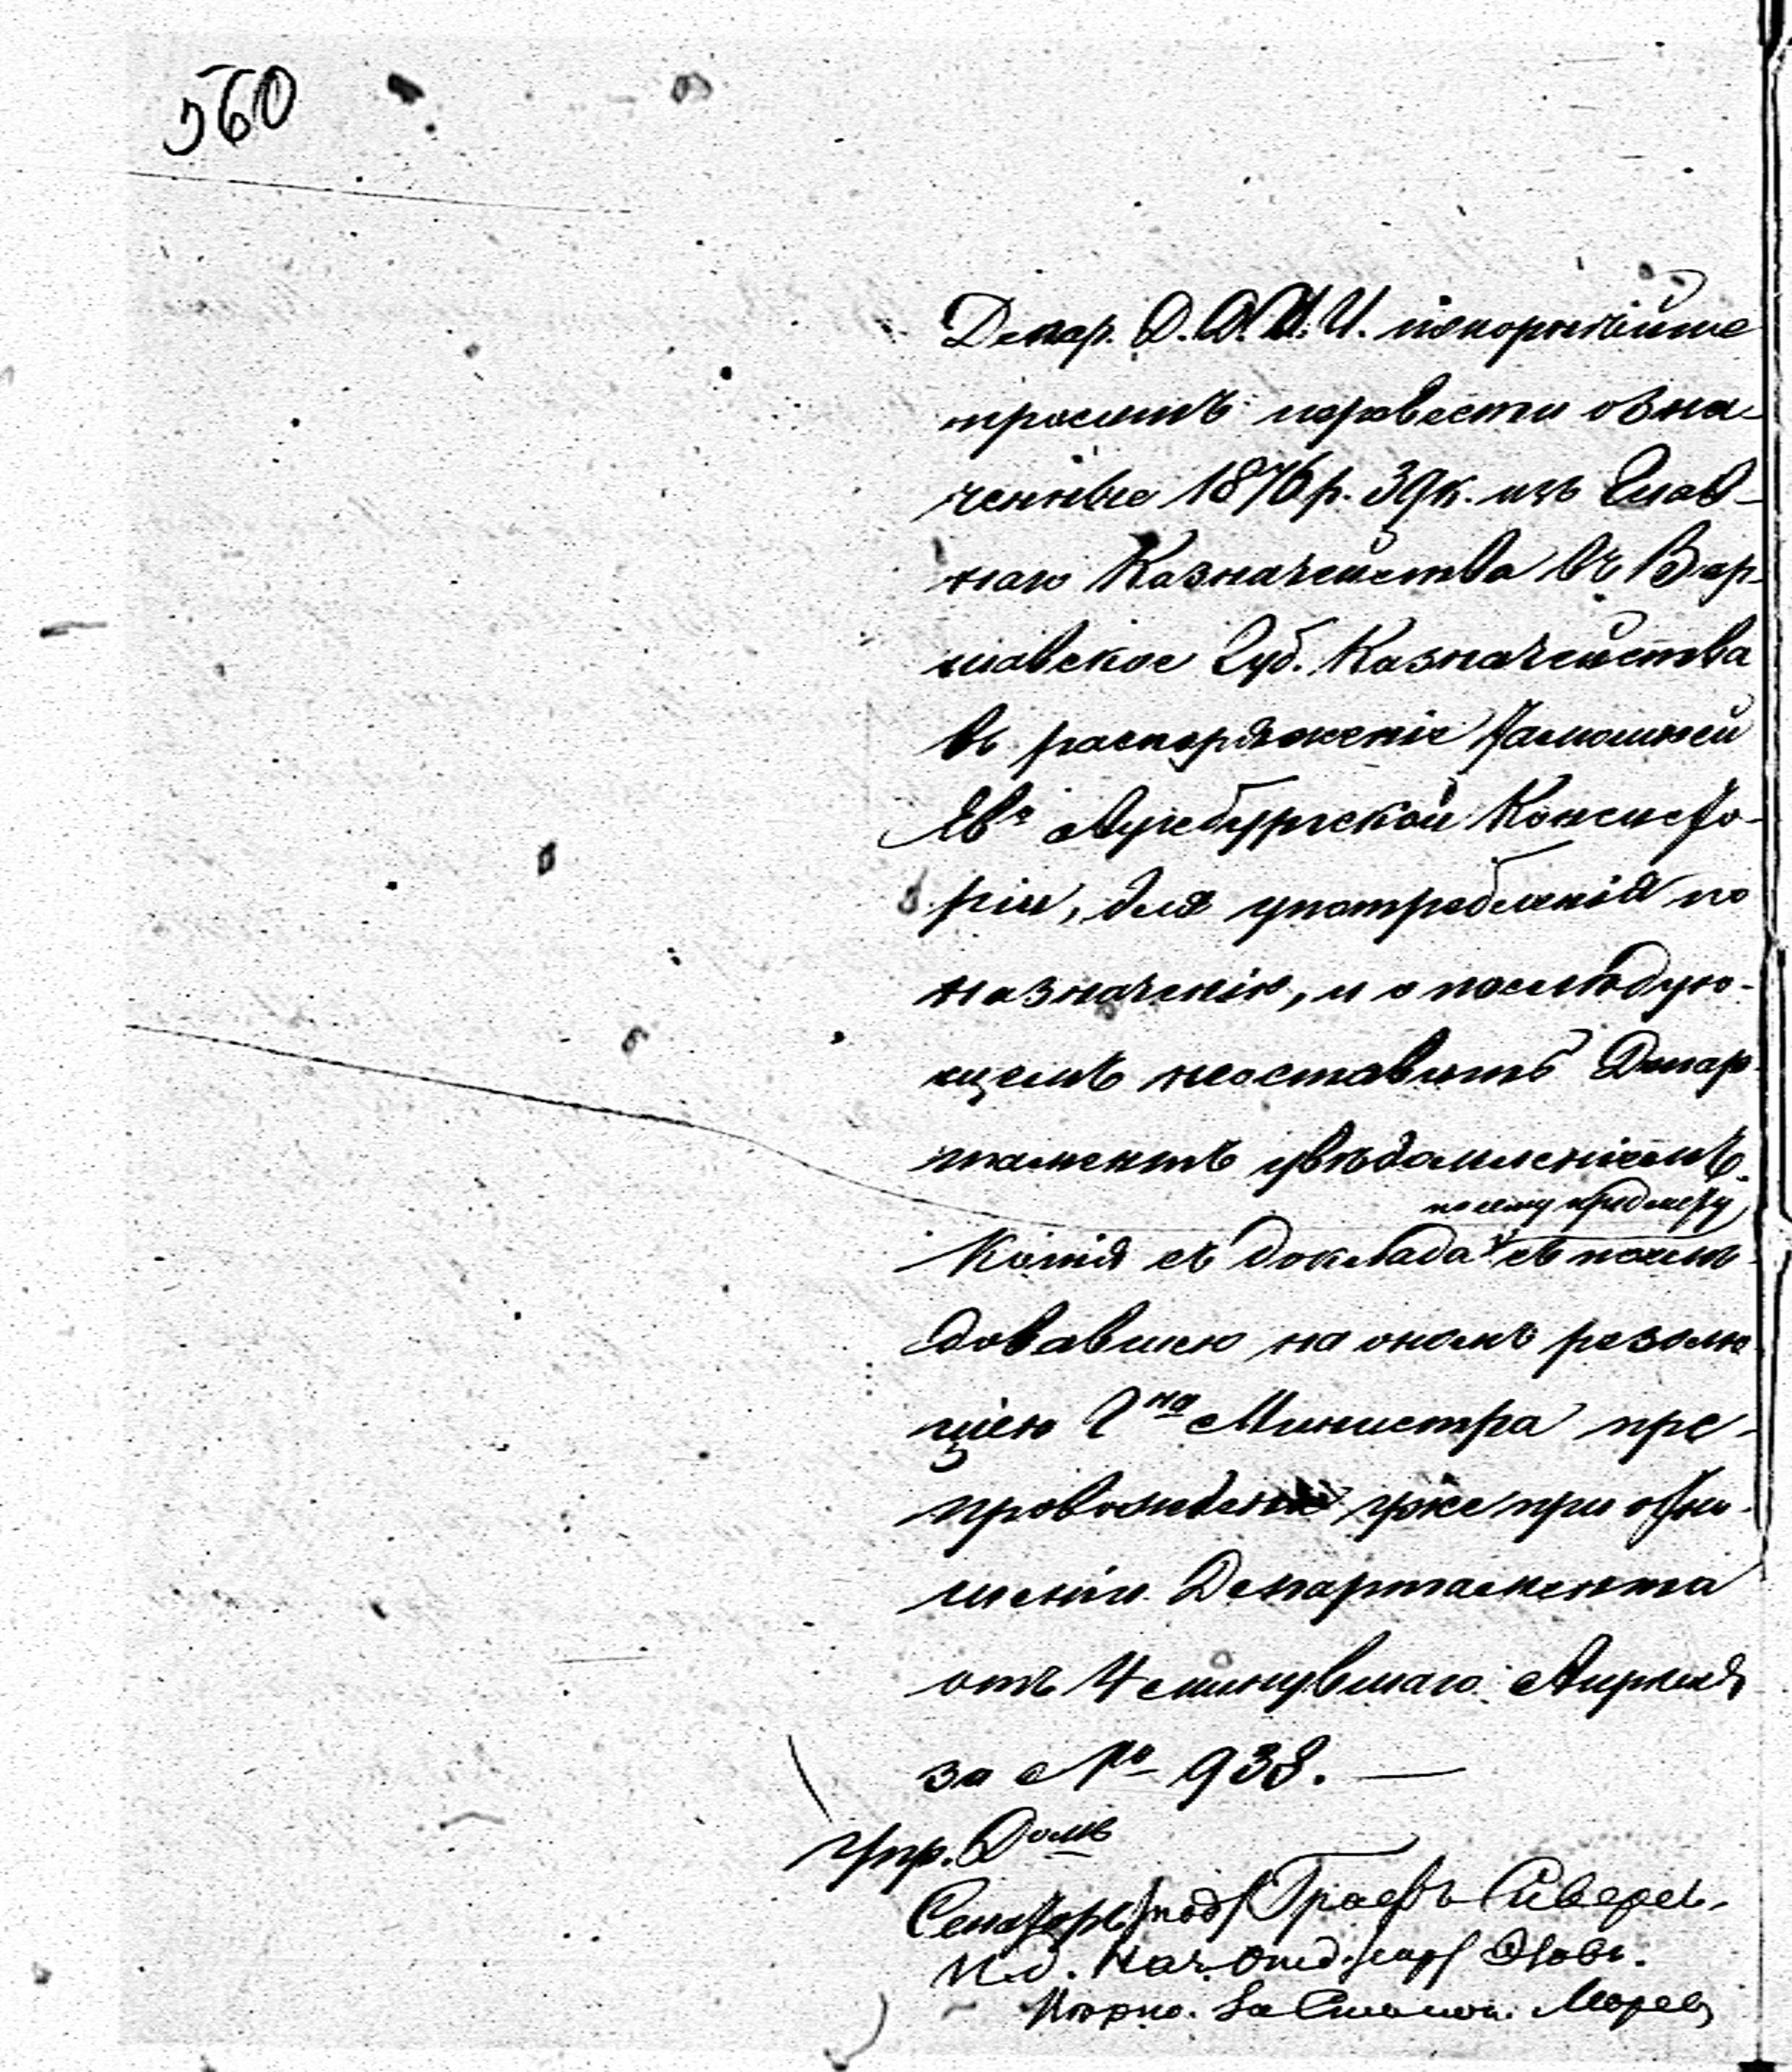 560
Депар. Д. Д. И. И. покорнѣйше
проситъ перевести озна-
ченные 1876 р. 39 к. изъ Глав-
наго Казначейства въ Вар-
шавское Губ. Казначейства
въ распоряженіе тамошней
Ев. Аугсбургской Консисто-
ріи, для употребленія по
назначенію, и о послѣдую-
щемъ неоставить Депар-
таментъ увѣдомленіемъ.
по сему предмету
Копія съ доклада съ послѣ-
довавшею на ономъ резолю-
ціею Гна Министра пре-
провождена уже при отно-
шеніи Департамента
отъ 4 минувшаго Апрѣля
за № 938. —
Упр. Домъ
Сенаторъ /под/ Графъ Сиверсъ.
И. д. Нач. Отд. /скр/
Вѣрно. За Столон.